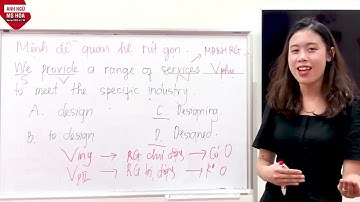 ANH NGỮ
MS HOA
Mệnh đề quan hệ rút gọn. MĐQHRG
We provide a range of services Vphụ
S V
to meet the specific industry.
A. design C. Designing
B. to design D. Designed
Ving → RG chủ động → Có O
VpII → RG bị động → K° O